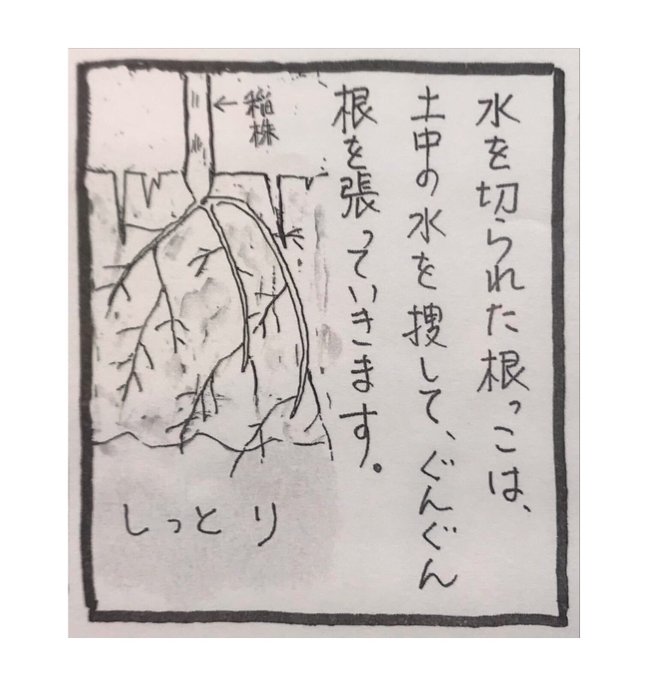 水を切られた根っこは、
土中の水を捜して、ぐんぐん
根を張っていきます。
稲株
しっとり